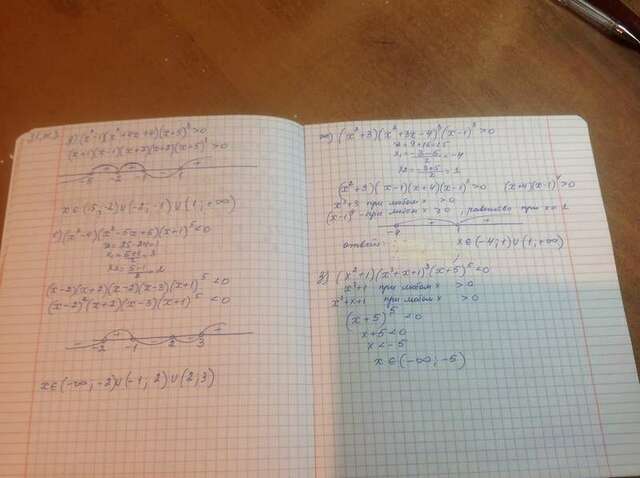 (x²-1)(x²+4x+4)(x+5)³>0
(x+1)(x-1)(x+2)(x+2)(x+5)³>0
-5 -2 -1 1 +
x∈(-5;-2)∪(-2;-1)∪(1;+∞)
(x²-4)(x²-5x+6)(x+1)⁵<0
D=25-24=1
x₁=5+1/2=3
x₂=5-1/2=2
(x-2)(x+2)(x-2)(x-3)(x+1)⁵<0
(x-2)²(x+2)(x-3)(x+1)⁵<0
- -2 + -1 - 2 - 3 +
x∈(-∞;-2)∪(-1;2)∪(2;3)
ж) (x²+3)(x²+3x-4)³(x-1)³>0
D=9+16=25
x₁=-3-5/2=-4
x₂=-3+5/2=1
x²+3 при любом x >0
- при любом x ≥0, при x=1
-4 +
ответ: x∈(-4;1)∪(1;+∞)
(x²+1)(x²+x+1)³(x+5)⁵<0
x²+1 при любом x >0
x²+x+1 при любом x >0
(x+5)⁵<0
x+5<0
x<-5
x∈(-∞;-5)